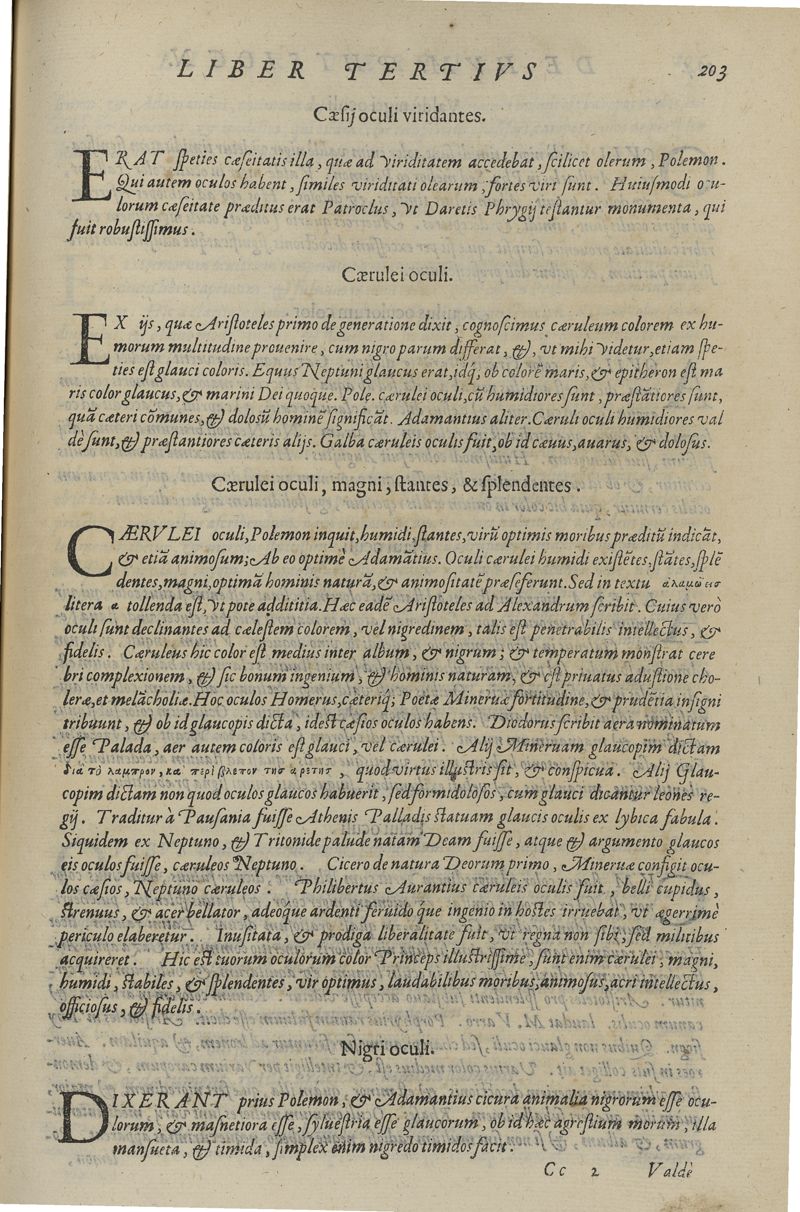 LIBER TERTIVS 203
Cæsij oculi viridantes.
ERAT speties cæseitatis illa, quæ ad viriditatem accedebat, scilicet olerum, Polemon.
Qui autem oculos habent, similes viriditati olearum, fortes viri sunt. Huiusmodi ocu-
lorum cæseitate præditus erat Patroclus, vt Daretis Phrygij testantur monumenta, qui
fuit robustissimus.
Cærulei oculi.
EX ijs, quæ Aristoteles primo de generatione dixit, cognoscimus cæruleum colorem ex hu-
morum multitudine prouenire, cum nigro parum differat, &, vt mihi videtur, etiam spe-
ties est glauci coloris. Equus Neptuni glaucus erat, idq; ob colorē maris, & epitheron est ma
ris color glaucus, & marini Dei quoque. Pole. cærulei oculi, cū humidiores sunt, præstātiores sunt,
quā cæteri cōmunes, & dolosū hominē significāt. Adamantius aliter. Cæruli oculi humidiores val
dè sunt, & præstantiores cæteris alijs. Galba cæruleis oculis fuit, ob id cæuus, auarus, & dolosus.
Cærulei oculi, magni, stantes, & splendentes.
CÆRVLEI oculi, Polemon inquit, humidi, stantes, virū optimis moribus præditū indicāt,
& etiā animosum; Ab eo optimè Adamātius. Oculi cærulei humidi existētes, stātes, splē
dentes, magni, optimā hominis naturā, & animositatē præseferunt. Sed in textu αλαμωεισ
litera α tollenda est, vt pote addititia. Hæc eadē Aristoteles ad Alexandrum scribit. Cuius verò
oculi sunt declinantes ad cælestem colorem, vel nigredinem, talis est penetrabilis intellectus, &
fidelis. Cæruleus hic color est medius inter album, & nigrum; & temperatum monstrat cere
bri complexionem, & sic bonum ingenium, & hominis naturam, & est priuatus adustione cho-
leræ, et melācholiæ. Hoc oculos Homerus, cæteriq; Poetæ Mineruæ fortitudine, & prudētia insigni
tribuunt, & ob id glaucopis dicta, idest cæsios oculos habens. Diodorus scribit aera nominatum
esse Palada, aer autem coloris est glauci, vel cærulei. Alij Mineruam glaucopim dictam
διὰ τὸ λαμπρον, και περίβλετον τησ αρετησ, quod virtus illustris sit, & conspicua. Alij Glau-
copim dictam non quod oculos glaucos habuerit, sed formidolosos, cum glauci dicantur leones re-
gij. Traditur à Pausania fuisse Athenis Palladis statuam glaucis oculis ex lybica fabula.
Siquidem ex Neptuno, & Tritonide palude natam Deam fuisse, atque & argumento glaucos
eis oculos fuisse, cæruleos Neptuno. Cicero de natura Deorum primo, Mineruæ configit ocu-
los cæsios, Neptuno cæruleos. Philibertus Aurantius cæruleis oculis fuit, belli cupidus,
strenuus, & acer bellator, adeoq́ue ardenti feruido q́ue ingenio in hostes irruebat, vt ægerrimè
periculo elaberetur. Inusitata, & prodiga liberalitate fuit, vt regna non sibi, sed militibus
acquireret. Hic est tuorum oculorum color Princeps illustrissime, sunt enim cærulei, magni,
humidi, stabiles, & splendentes, vir optimus, laudabilibus moribus, animosus, acri intellectus,
officiosus, & fidelis.
Nigri oculi.
DIXERANT prius Polemon, & Adamantius cicura animalia nigrorum esse ocu-
lorum, & masnetiora esse, syluestria esse glaucorum, ob id hæc agrestium morum, illa
mansueta, & timida, simplex enim nigredo timidos facit.
Cc 2 Valdè